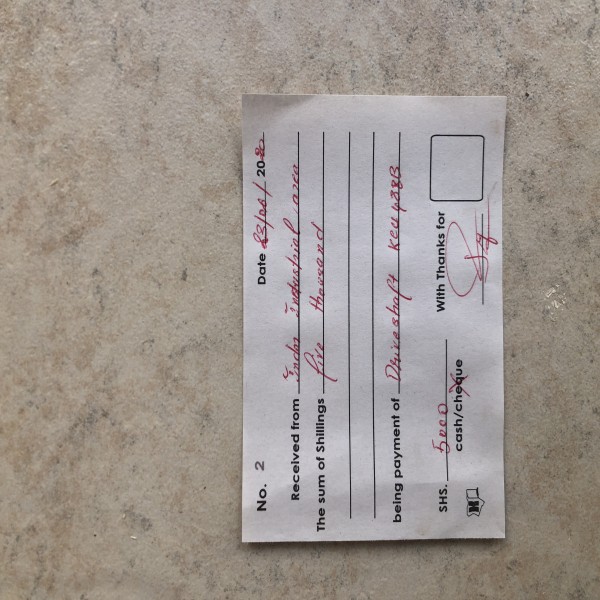 No. 2 Date 23/06/ 2020
Received from Indo Industrial area
The sum of Shillings five thousand
being payment of Driveshaft KCU 438B
SHS. 5000 With Thanks for
cash/cheque